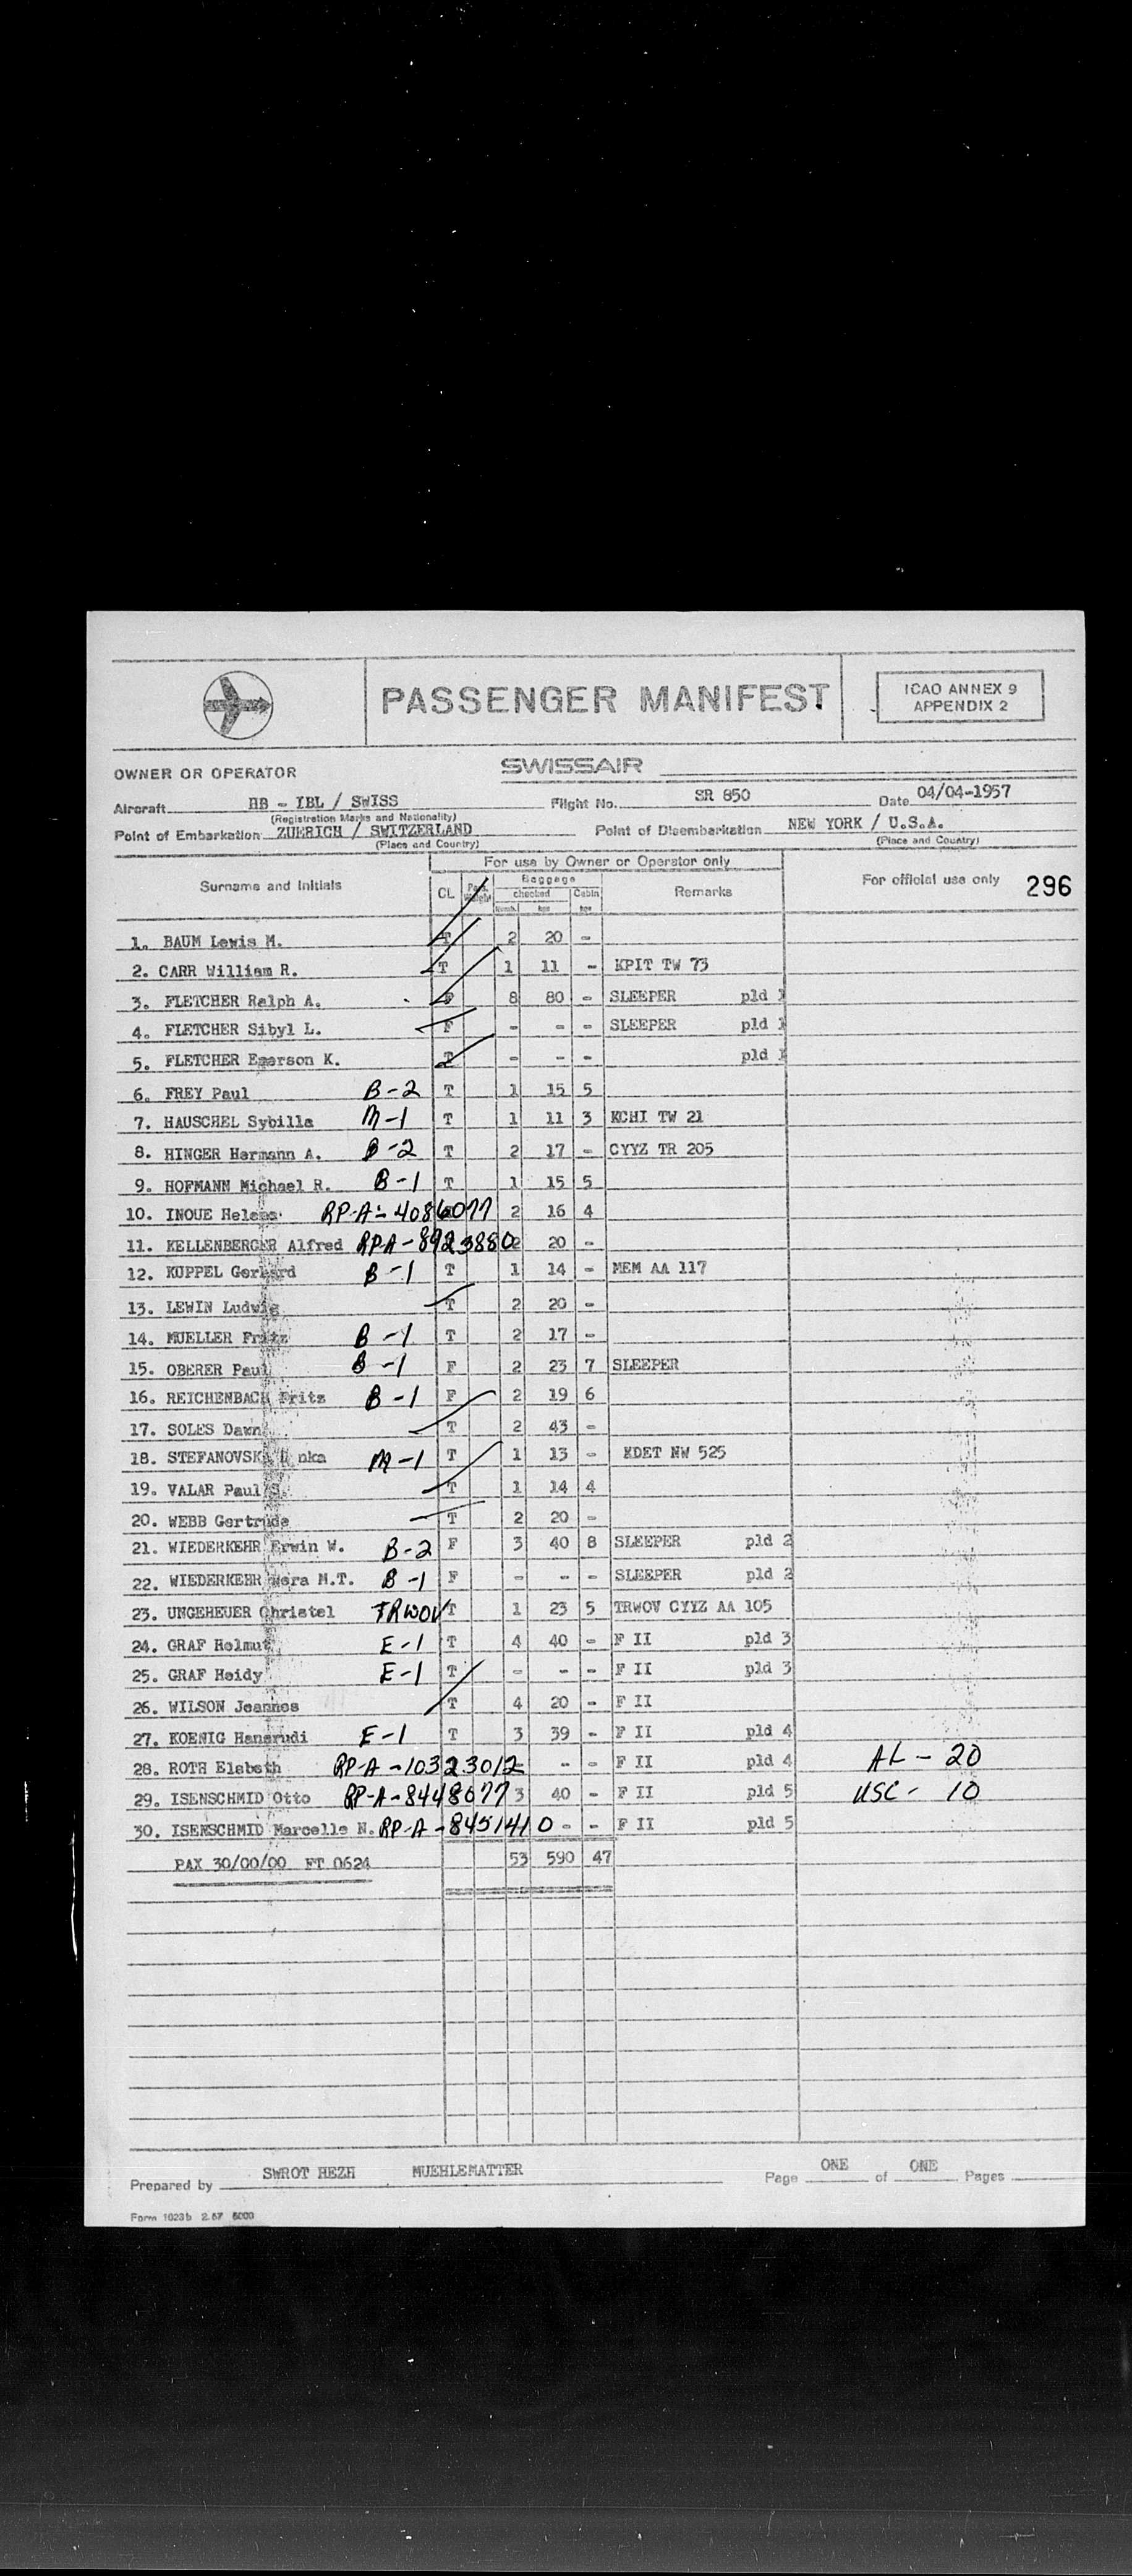 PASSENGER MANIFEST
ICAO ANNEX 9
APPENDIX 2
OWNER OR OPERATOR SWISSAIR
Aircraft HB - IBL / SWISS Flight No. SR 850 Date 04/04-1957
(Registration Marks and Nationality)
Point of Embarkation ZUERICH / SWITZERLAND Point of Disembarkation NEW YORK / U.S.A.
(Place and Country) (Place and Country)
For use by Owner or Operator only
Surname and Initials CL Baggage Remarks For official use only 296
checked Cabin
1. BAUM Lewis M. T 2 20 -
2. CARR William R. T 1 11 - KPIT TW 73
3. FLETCHER Ralph A. F 8 80 - SLEEPER pld 1
4. FLETCHER Sibyl L. F - - - SLEEPER pld 1
5. FLETCHER Emerson K. T - - - pld 1
6. FREY Paul B-2 T 1 15 5
7. HAUSCHEL Sybilla M-1 T 1 11 3 KCHI TW 21
8. HINGER Hermann A. B-2 T 2 17 - CYYZ TR 205
9. HOFMANN Michael R. B-1 T 1 15 5
10. INOUE Helene RP-A-4086077 2 16 4
11. KELLENBERGER Alfred RP-A-8923880 2 20 -
12. KUPPEL Gerhard B-1 T 1 14 - MEM AA 117
13. LEWIN Ludwig T 2 20 -
14. MUELLER Fritz B-1 T 2 17 -
15. OBERER Paul B-1 F 2 23 7 SLEEPER
16. REICHENBACH Fritz B-1 F 2 19 6
17. SOLES Dawn T 2 43 -
18. STEFANOVSKA M-1 T 1 13 - KDET NW 525
19. VALAR Paul T 1 14 4
20. WEBB Gertrude T 2 20 -
21. WIEDERKEHR Erwin W. B-2 F 3 40 8 SLEEPER pld 2
22. WIEDERKEHR Wera M.T. B-1 F - - - SLEEPER pld 2
23. UNGEHEUER Christel TRWOV T 1 23 5 TRWOV CYYZ AA 105
24. GRAF Helmut E-1 T 4 40 - F II pld 3
25. GRAF Heidy E-1 T - - - F II pld 3
26. WILSON Jeannes T 4 20 - F II
27. KOENIG Hansrudi E-1 T 3 39 - F II pld 4
28. ROTH Elsbeth RP-A-10323012 - - F II pld 4 AL - 20
29. ISENSCHMID Otto RP-A-8448077 3 40 - F II pld 5 USC - 10
30. ISENSCHMID Marcelle N. RP-A-8451410 - - F II pld 5
PAX 30/00/00 FT 0624 53 590 47
Prepared by SWROT HEZH MUEHLEMATTER Page ONE of ONE Pages
Form 1023b 2.57 5000